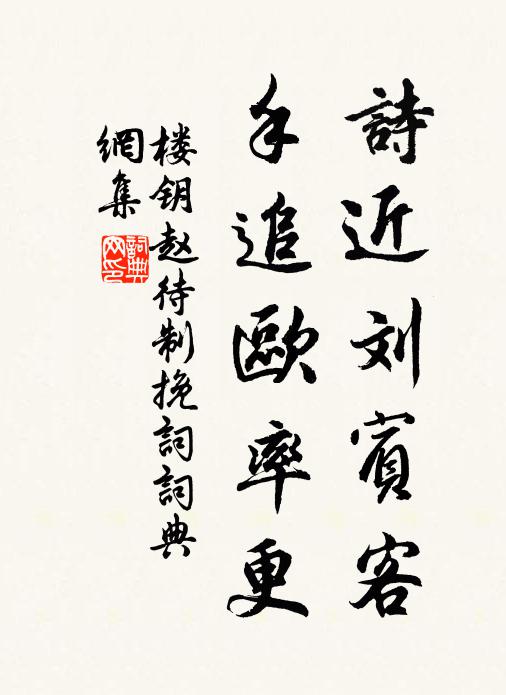 詩近刘賓客
手追歐率更
楼钥赵待制挽詞詞典
網集
詞典网印